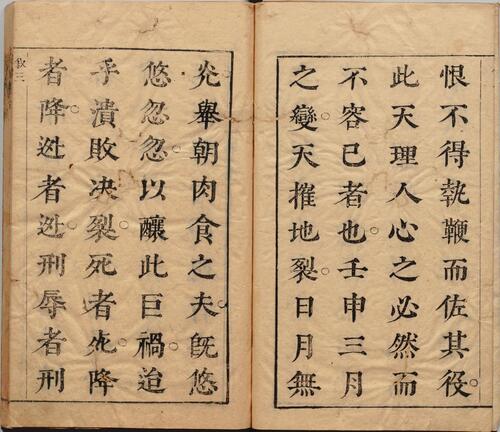 恨不得執鞭而佐其役
此天理人心之必然而
不容已者也壬申三月
之變天摧地裂日月無
光舉朝肉食之夫旣悠
悠忽忽以釀此巨禍迨
乎潰敗决裂死者死降
者降迯者迯刑辱者刑
敘三